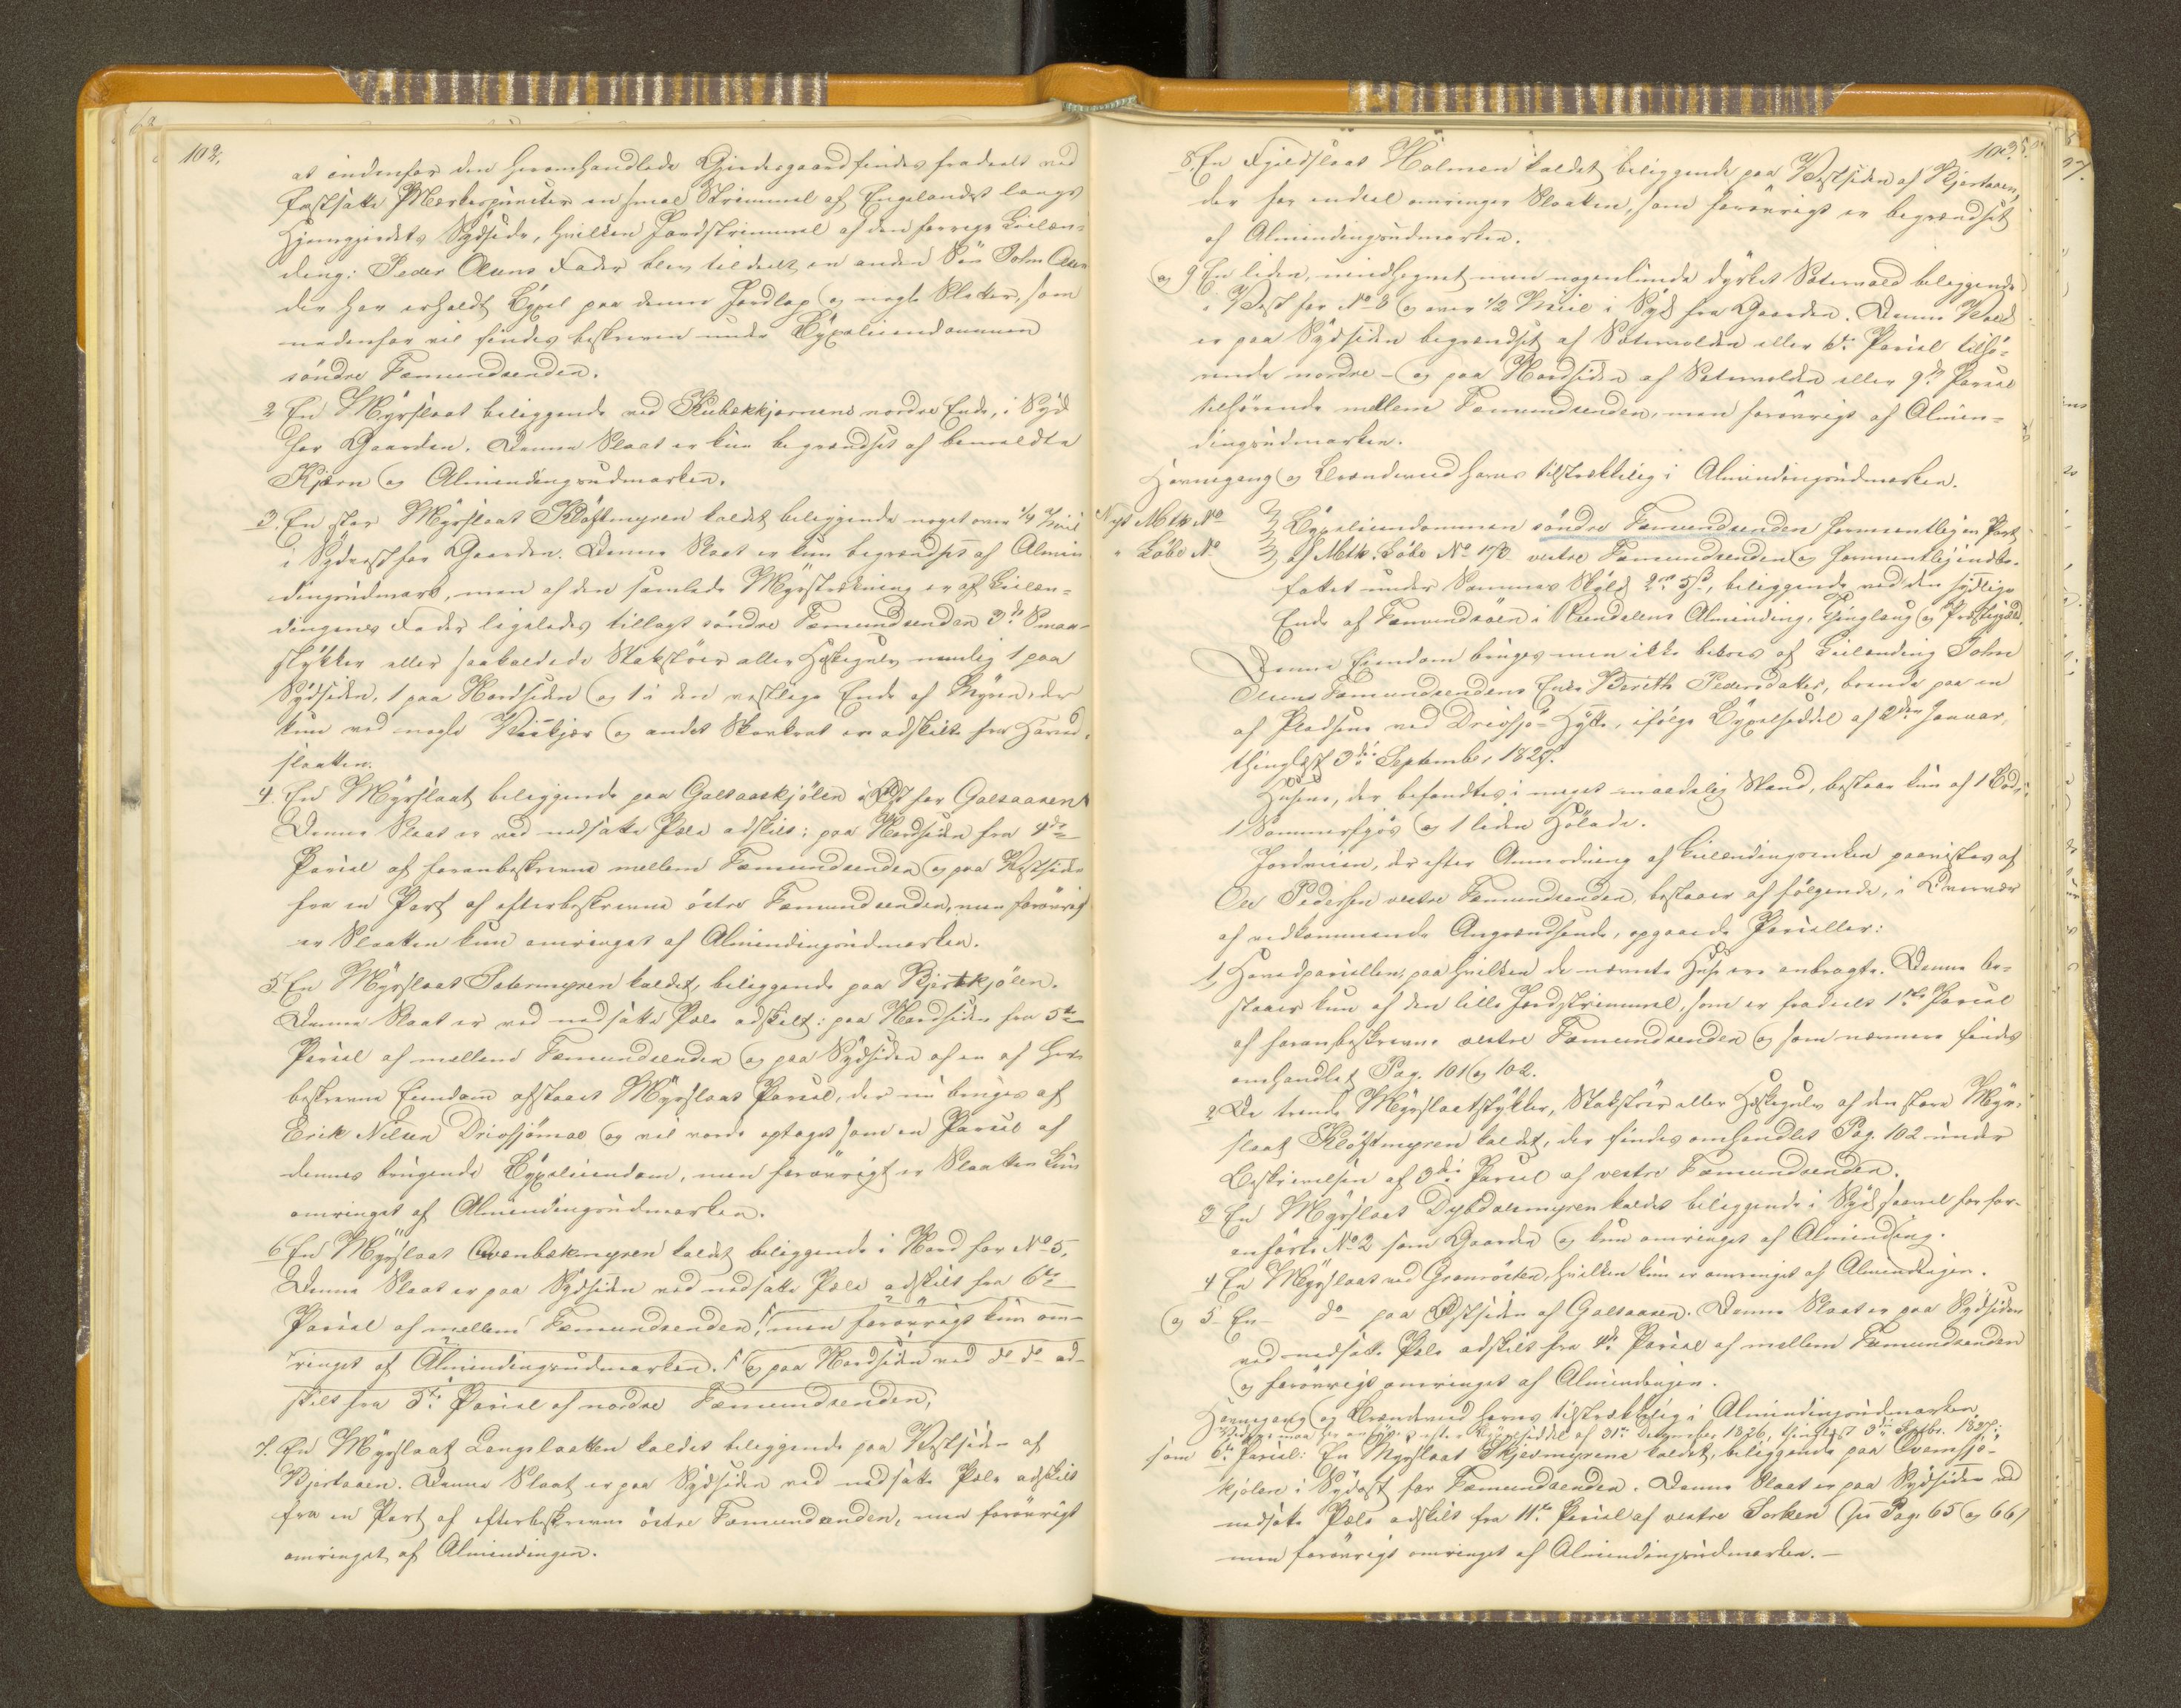 102.
at indenfor den heromhandlede Gjerdesgaard findes fradeelt ved
fastsatte Mærkespuncter en smal Strimmel af Engelandet langs
Hjemgjerdets Sydside, hvilken Jordstrimmel af den forrige Leilæn-
ding: Peder Olsens Fader blev tildeelt en anden Sön John Olsen
der har erholdt Byxel paa denne Jordlap og nogle Slætter, som
nedenfor vil findes beskreven under Byxeleiendommen
söndre Fæmundsenden.
2 En Myrslaat beliggende ved Kubækkjærnens nordre Ende, i Syd
for Gaarden. Denne Slaat er kun begrændset af bemeldte
Kjærn og Almindingsudmarken.
3. En stor Myrslaat Klöftmyren kaldet beliggende noget over 1/4 Miil
i Sydvest for Gaarden. Denne Slaat er kun begrændset af Almin-
dingsudmark, men af den samlede Myrstrækning er af Leilæn-
dingens Fader ligeledes tillagt söndre Fæmundsenden 3de Smaa-
stykker eller saakaldede Stakstöer eller Høskegulv nemlig 1 paa
Sydsiden, 1 paa Nordsiden og 1 i den vestlige Ende af Myren, der
kun ved nogle Viekjær og andet Skovkrat er adskilte fra Hoved-
slaatten.
4. En Myrslaat beliggende paa Galsaaskjölen i Øst for Galsaasen
Denne Slaat er ved nedsatte Pæle adskilt: paa Nordsiden fra 4de
Parsel af foranbeskrevne mellem Fæmundsenden og paa Vestsiden
fra en Part af efterbeskrevne östre Fæmundsenden, men forövrigt
er Slaatten kun omringet af Almindingsudmarken.
5. En Myrslaat Sætermyren kaldet, beliggende paa Bjertkjölen.
Denne Slaat er ved nedsatte Pæle adskilt: paa Nordsiden fra 5te
Parsel af mellem Fæmundsenden og paa Sydsiden af en af her-
beskrevne Eiendom afstaaet Myrslaat Parsel, der nu bruges af
Erik Nilsen Drivsjömoe og vil vorde optaget som en Parsel af
dennes brugende Byxeleiendom, men forövrigt er Slaatten kun
omringet af Almindingsudmarken.
6 En Myrslaat Qvænbækmyren kaldet beliggende i Nord for No 5.
Denne Slaat er paa Sydsiden ved nedsatte Pæle adskilt fra 6te
Parsel af mellem Fæmundsenden, men forövrigt kun om-
ringet af Almindingsudmarken. og paa Nordsiden ved do do ad-
skilt fra 5te Parsel af nordre Fæmundsenden,
7. En Myrslaat Langslaatten kaldet beliggende paa Vestsiden af
Bjertaaen. Denne Slaat er paa Sydsiden ved nedsatte Pæle adskilt
fra en Part af efterbeskrevne östre Fæmundsenden, men forövrigt
omringet af Almindingen.
103.
8. En Fjeldslaat Holmen kaldet beliggende paa Vestsiden af Bjertaaen,
der for endeel omringer Slaatten, som forövrigt er begrændset
af Almindingsudmarken.
og 9 En liden, uindhegnet men nogenlunde dyrket Sætervold beliggende
i Vest for No 8 og over 1/2 Miil i Syd fra Gaarden. Denne Vold
er paa Sydsiden begrændset af Sætervolden eller 6te Parsel tilhö-
rende nordre - og paa Nordsiden af Sætervolden eller 9de Parsel
tilhörende mellem Fæmundsenden, men forövrigt af Almin-
dingsudmarken.
Havnegang og Brændeved haves tilstrækkelig i Almindingsudmarken.
Nyt Mtk No
" Löbe No
Byxeleiendommen söndre Fæmundsenden formeentlig en Part
af Mtk. Löbe No 173 vestre Fæmundsenden og formeentlig indbe-
fattet under Sammes Skyld 2 ort 5 s, beliggende ved den sydlige
Ende af Fæmundsöen i Rendalens Alminding, Thinglaug og Præstegjeld.
Denne Eiendom bruges men ikke beboes af Leilænding John
Olsens Fæmundsendens Enke Berith Pedersdatter, boende paa en
af Pladsene ved Drivsjö-Hytte, ifölge Byxelseddel af 2den Januar,
thinglæst 3die September 1827.
Husene, der befandtes i meget maadelig Stand, bestaar kun af 1 Bod,
1 Sommerfjös og 1 liden Hölade.
Jordveien, der efter Anmodning af Leilændingsenken paavistes af
Ole Pedersen vestre Fæmundsenden, bestaaer af fölgende, i Overvær
af vedkommende Angrændsende, opgaaede Parseller:
1, Hovedparsellen, paa hvilken de nævnte Huse ere anbragte. Denne be-
staaer kun af den lille Jordstrimmel, som er fradeelt 1ste Parsel
af foranbeskrevne vestre Fæmundsenden og som nærmere findes
omhandlet Pag. 101 og 102.
2 De trende Myrslaatstykker, Stakstöer eller Høskegulv af den store Myr-
slaat Klöftmyren kaldet, der findes omhandlet Pag. 102 under
Beskrivelsen af 3die Parsel af vestre Fæmundsenden.
3 En Myrslaat Dybdalsmyren kaldet beliggende i Syd saavel for for-
anförte No 2 som Gaarden og kun omringet af Alminding.
4 En Myrslaat ved Grænrösten, hvilken kun er omringet af Almindingen.
og 5 En do paa Østsiden af Galsaasen. Denne Slaat er paa Sydsiden
ved nedsatte Pæle adskilt fra 4de Parsel af mellem Fæmundsenden
og forövrigt omringet af Almindingen.
Havnegang og Brændeved haves tilstrækkelig i Almindingsudmarken
efter Byxelseddel af 31te December 1826, thinglæst 3die Septbr. 1827:
som 6te Parsel: En Myrslaat Skjevmyrene kaldet, beliggende paa Qvemsjö-
kjölen i Sydöst for Fæmundsenden. Denne Slaat er paa Sydsiden ved
nedsatte Pæle adskilt fra 11te Parsel af vestre Sorken (see Pag. 65 og 66)
men forövrigt omringet af Almindingsudmarken. —